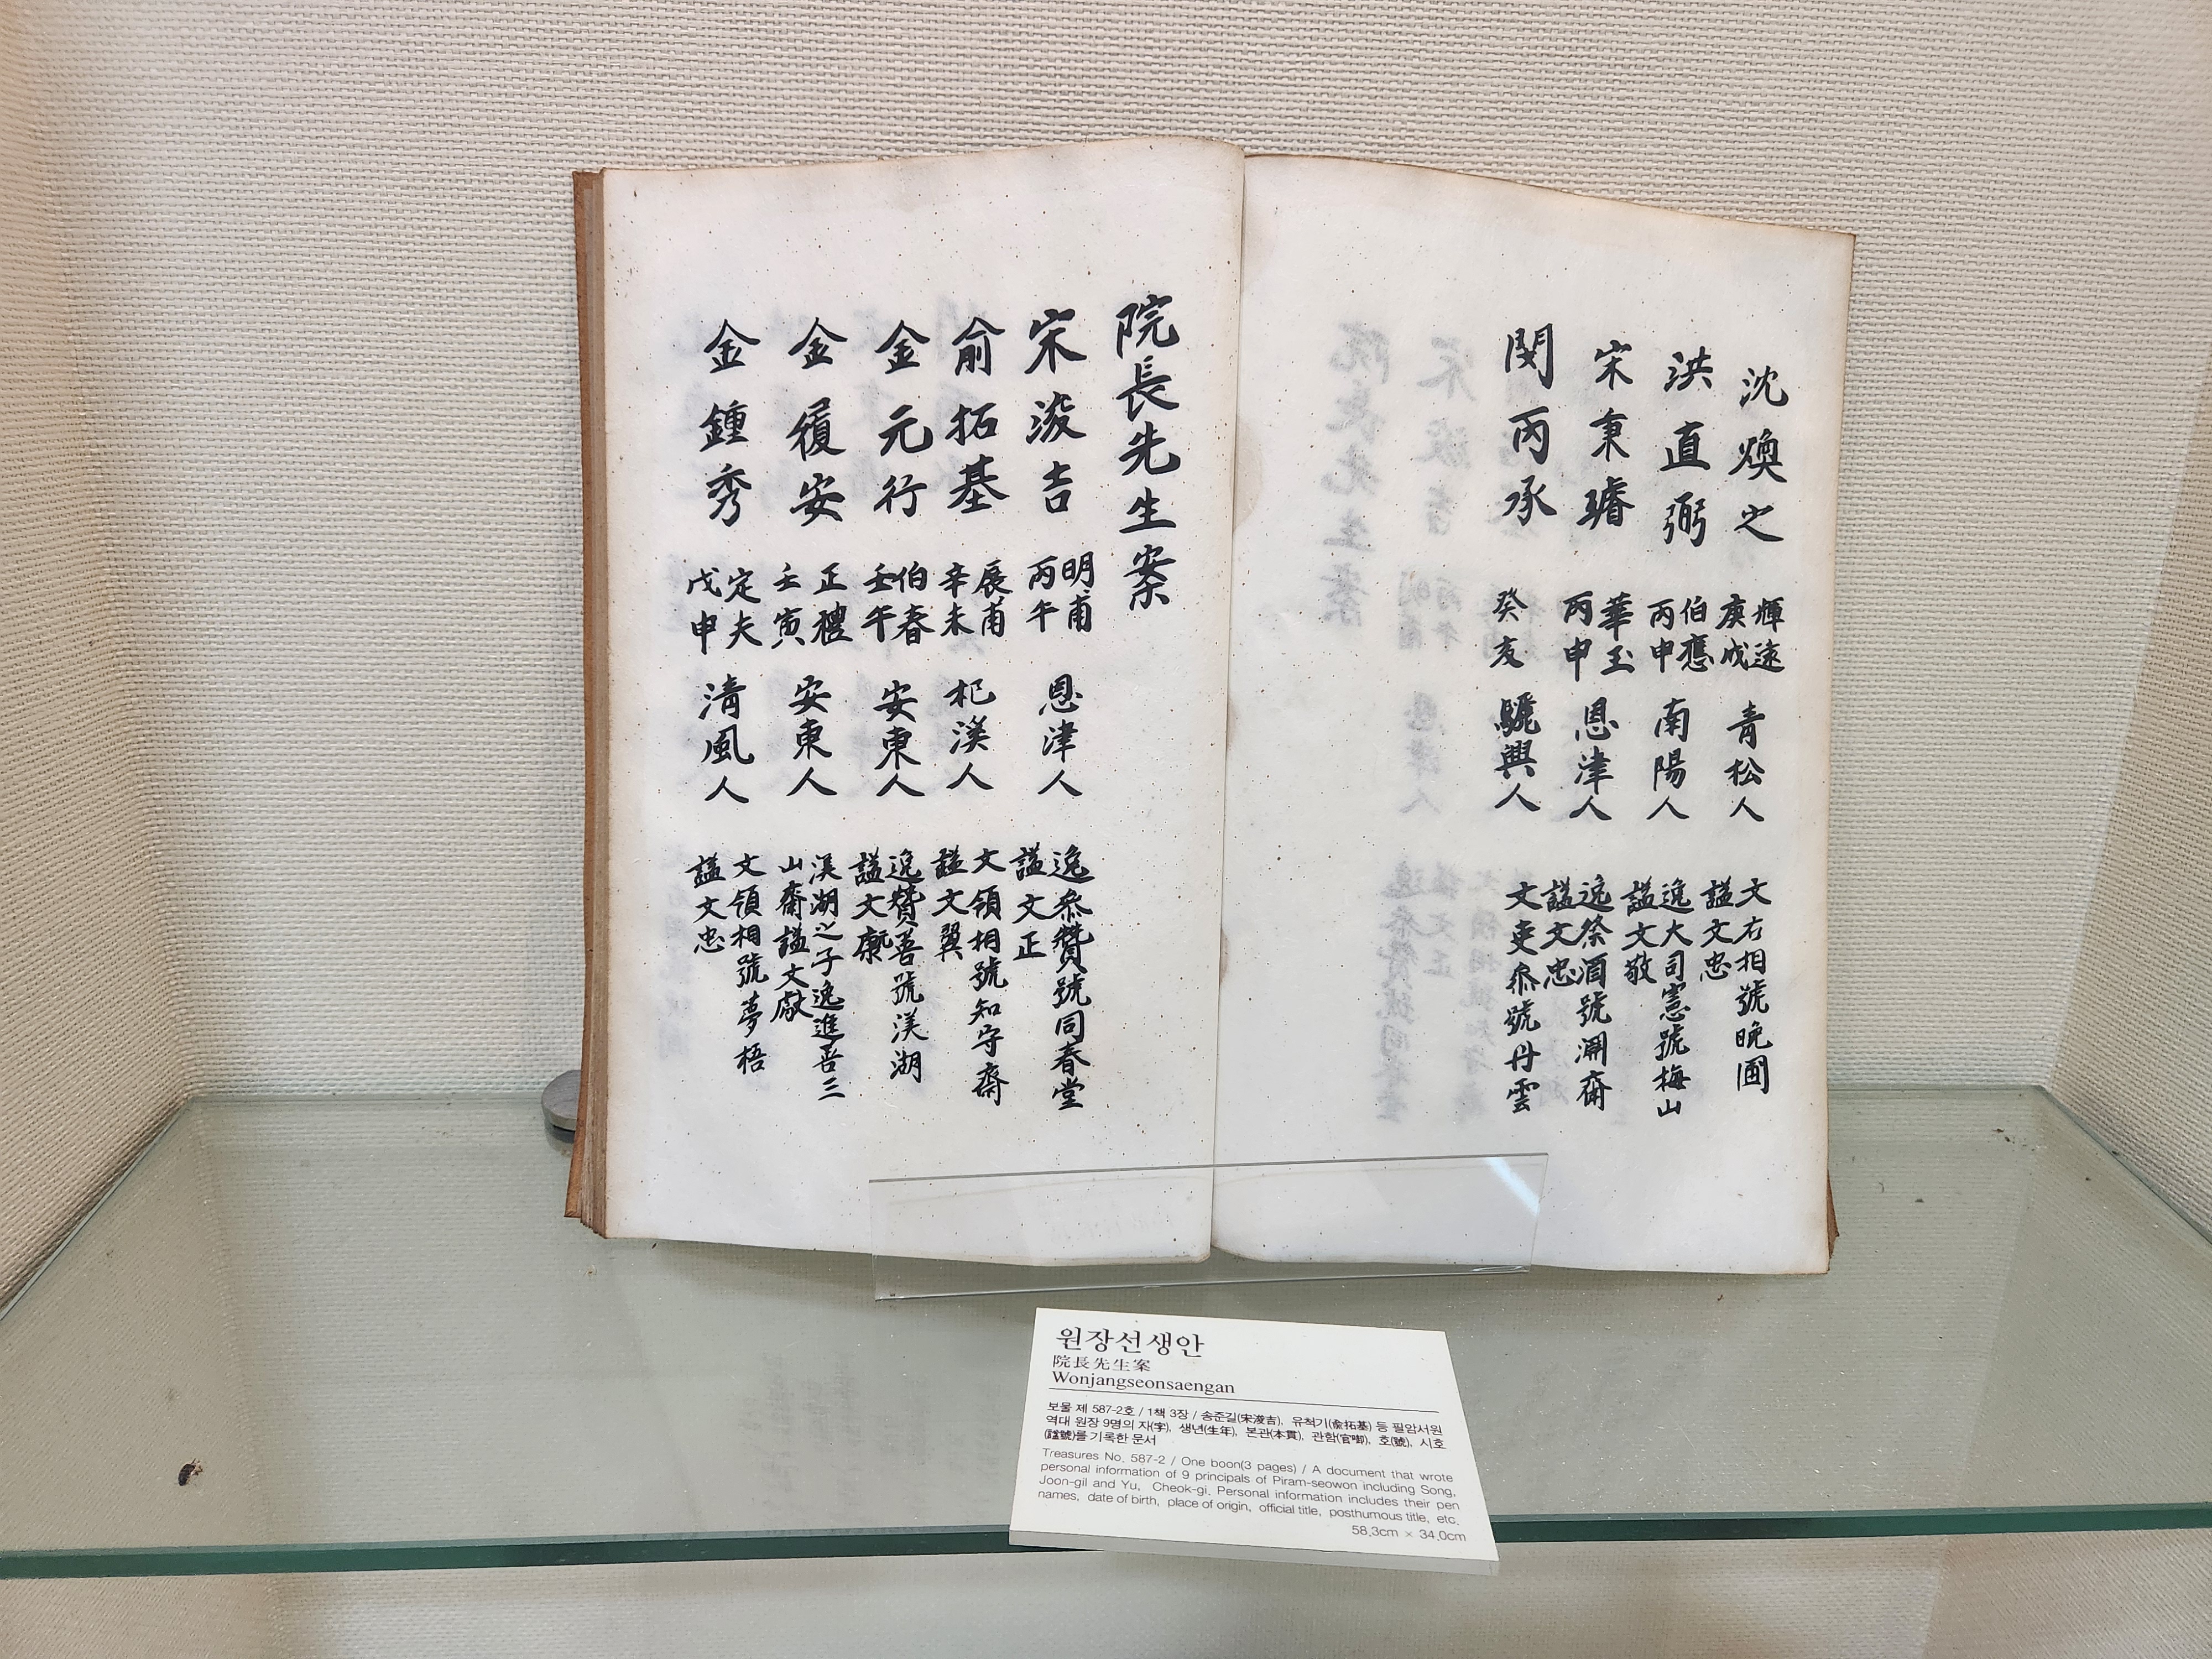 沈煥之 輝遠 庚戌 青松人 文右相號晩圃 諡文忠
洪直弼 伯應 丙申 南陽人 逸大司憲號梅山 諡文敬
宋秉璿 華玉 丙申 恩津人 逸祭酒號淵齋 諡文忠
閔丙承 癸亥 驪興人 文吏參號丹雲
院長先生案
宋浚吉 明甫 丙午 恩津人 逸參贊號同春堂 諡文正
兪拓基 展甫 辛未 杞溪人 文領相號知守齋 諡文翼
金元行 伯春 壬午 安東人 逸贊善號渼湖 諡文康
金履安 正禮 壬寅 安東人 渼湖之子逸進善三山齋諡文獻
金鍾秀 定夫 戊申 清風人 文領相號夢梧 諡文忠
원장선생안
院長先生案
Wonjangseonsaengan
보물 제 587-2호 / 1책 3장 / 송준길(宋浚吉), 유척기(兪拓基) 등 필암서원
역대 원장 9명의 자(字), 생년(生年), 본관(本貫), 관함(官啣), 호(號), 시호
(諡號)를 기록한 문서
Treasures No. 587-2 / One boon(3 pages) / A document that wrote
personal information of 9 principals of Piram-seowon including Song,
Joon-gil and Yu, Cheok-gi. Personal information includes their pen
names, date of birth, place of origin, official title, posthumous title, etc.
58.3cm × 34.0cm